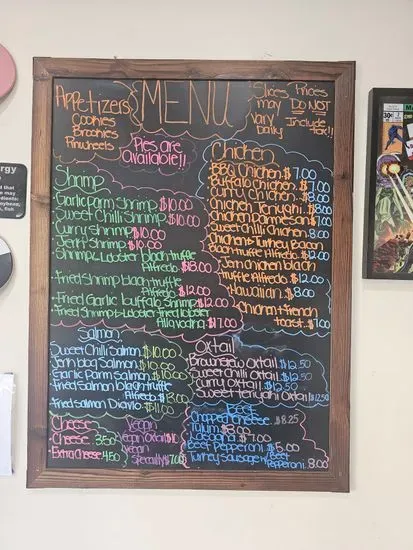 Appetizers
Cookies
Brookies
Pinwheels
MENU
Slices
may
vary
Daily
Prices
DO NOT
Include
tax!!
Pies are
available!!
Shrimp
Garlic Parm Shrimp $10.00
Sweet Chilli Shrimp $10.00
Curry Shrimp $10.00
Jerk Shrimp $10.00
Shrimp & Lobster black truffle
Alfredo $18.00
Fried Shrimp black truffle
Alfredo $12.00
Fried Garlic buffalo Shrimp $12.00
Fried Shrimp & Lobster Fried lobster
Alla vodka $17.00
Chicken
BBQ Chicken $7.00
Buffalo Chicken $7.00
Curry Chicken $8.00
Chicken Teriyaki $8.00
Chicken Parmesan $7.00
Sweet Chilli Chicken 8.00
Chicken & Turkey Bacon
Black truffle Alfredo $12.00
Jerk Chicken black
truffle Alfredo $12.00
Hawaiian $8.00
Chicken & French
toast $7.00
Salmon
Sweet Chilli Salmon $10.00
Jerk bbq Salmon $10.00
Garlic Parm Salmon $10.00
Fried Salmon black truffle
Alfredo $13.00
Fried Salmon Diavlo $11.00
Oxtail
Brown Stew Oxtail $12.50
Sweet Chilli Oxtail $12.50
Curry Oxtail $12.50
Sweet Teriyaki Oxtail $12.50
Beef
Chopped cheese $8.25
Taium $8.00
Lasagna $7.00
Beef Pepperoni $5.00
Turkey Sausage w/ Beef
Pepperoni 8.00
Cheese
Cheese 3.50
Extra Cheese 4.50
Vegan
Vegan Oxtail $10
Vegan
Specialty $7.00
ergy